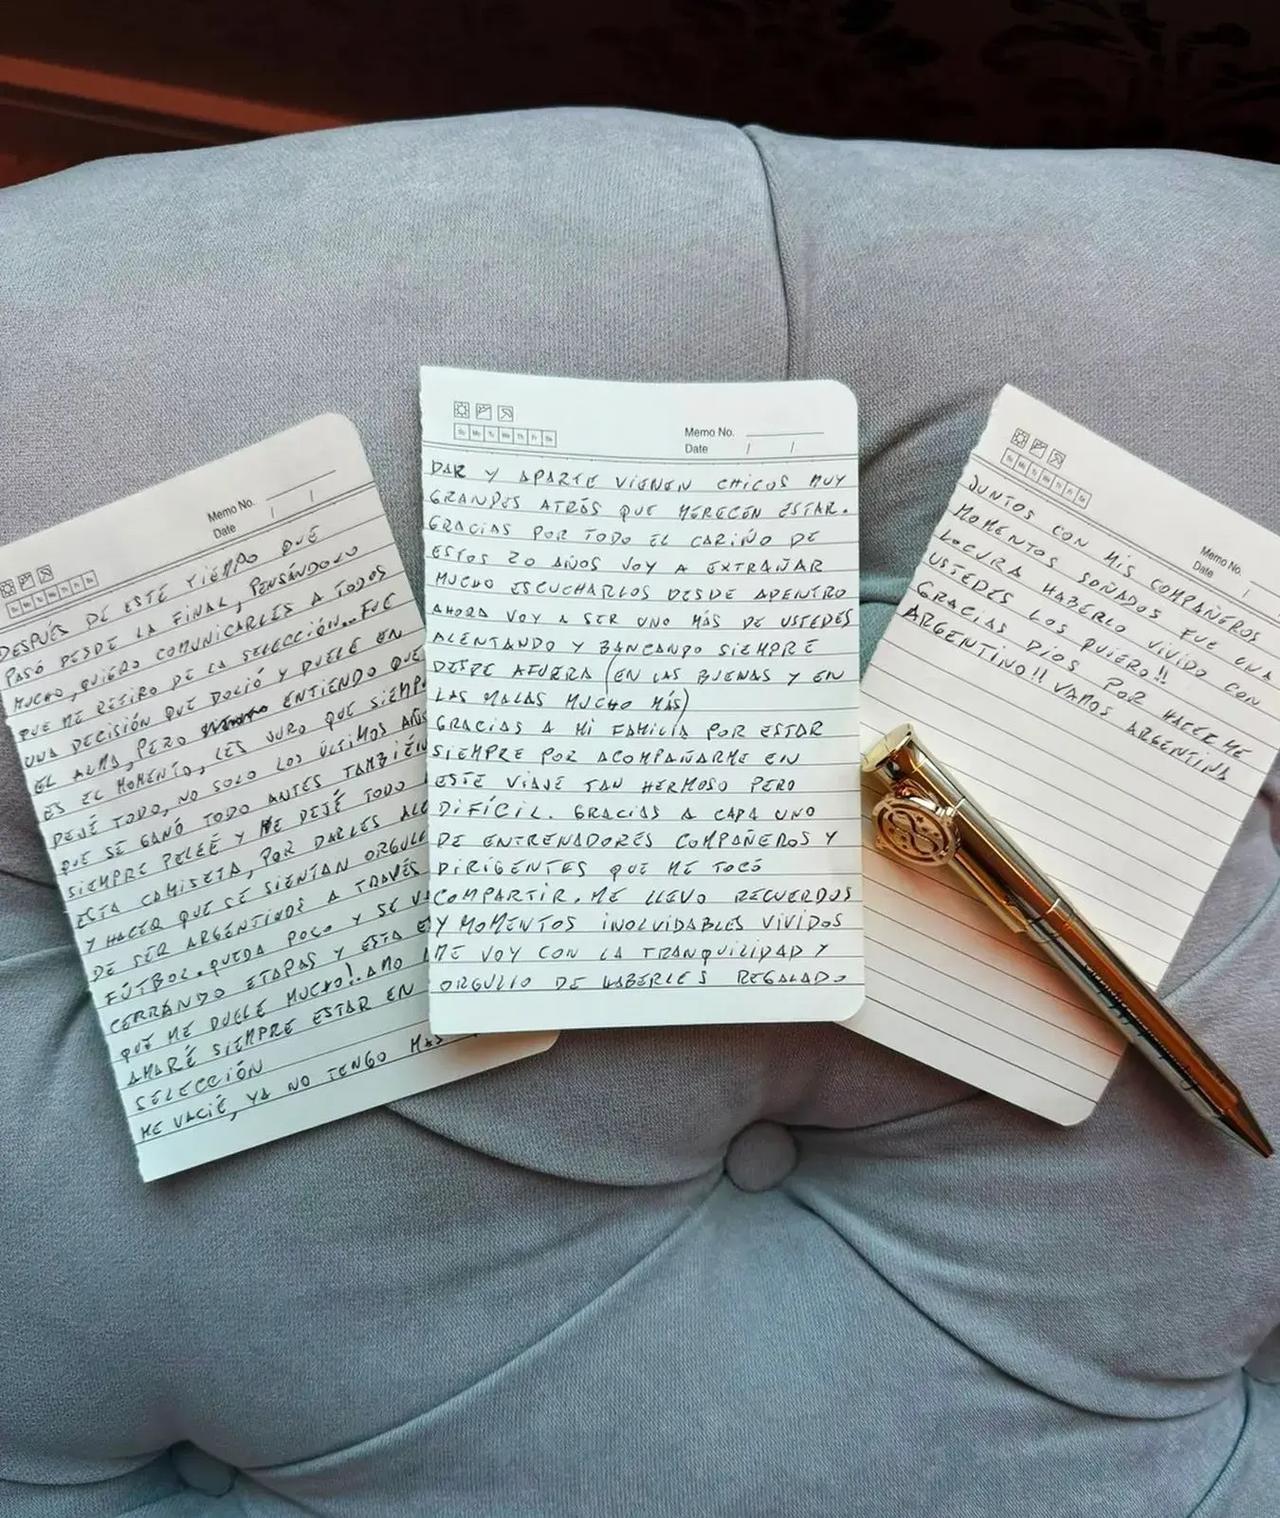 Memo No.
Date / /
DESPUÉS DE ESTE TIEMPO QUE
PASÓ DESDE LA FINAL, PENSÁNDOLO
MUCHO, QUIERO COMUNICARLES A TODOS
QUE ME RETIRO DE LA SELECCIÓN.. FUE
UNA DECISIÓN QUE DOLIÓ Y DUELE EN
EL ALMA, PERO ENTIENDO QUE
ES EL MOMENTO, LES JURO QUE SIEMP
DEJÉ TODO, NO SOLO LOS ÚLTIMOS AÑOS
QUE SE GANÓ TODO ANTES TAMBIÉN
SIEMPRE PELEÉ Y ME DEJÉ TODO
ESTA CAMISETA, POR DARLES ALE
Y HACER QUE SE SIENTAN ORGULL
DE SER ARGENTINOS A TRAVÉS
FÚTBOL. QUEDA POCO Y SE VA
CERRANDO ETAPAS Y ESTA E
QUE ME DUELE MUCHO!. AMO
AMARÉ SIEMPRE ESTAR EN
SELECCIÓN
ME VACIÉ, YA NO TENGO MAS
Su Mo Tu We Th Fr Sa
Memo No.
Date / /
DAR Y APARTE VIENEN CHICOS MUY
GRANDES ATRÁS QUE MERECEN ESTAR.
GRACIAS POR TODO EL CARIÑO DE
ESTOS 20 AÑOS VOY A EXTRAÑAR
MUCHO ESCUCHARLOS DESDE ADENTRO
AHORA VOY A SER UNO MÁS DE USTEDES
ALENTANDO Y BANCANDO SIEMPRE
DESDE AFUERA (EN LAS BUENAS Y EN
LAS MALAS MUCHO MÁS)
GRACIAS A MI FAMILIA POR ESTAR
SIEMPRE POR ACOMPAÑARME EN
ESTE VIAJE TAN HERMOSO PERO
DIFÍCIL. GRACIAS A CADA UNO
DE ENTRENADORES COMPAÑEROS Y
DIRIGENTES QUE ME TOCÓ
COMPARTIR. ME LLEVO RECUERDOS
Y MOMENTOS INOLVIDABLES VIVIDOS
ME VOY CON LA TRANQUILIDAD Y
ORGULLO DE HABERLES REGALADO
Memo No.
Date /
JUNTOS CON MIS COMPAÑEROS
MOMENTOS SOÑADOS FUE UNA
LOCURA HABERLO VIVIDO CON
USTEDES LOS QUIERO!!
GRACIAS DIOS POR HACERME
ARGENTINO!! VAMOS ARGENTINA